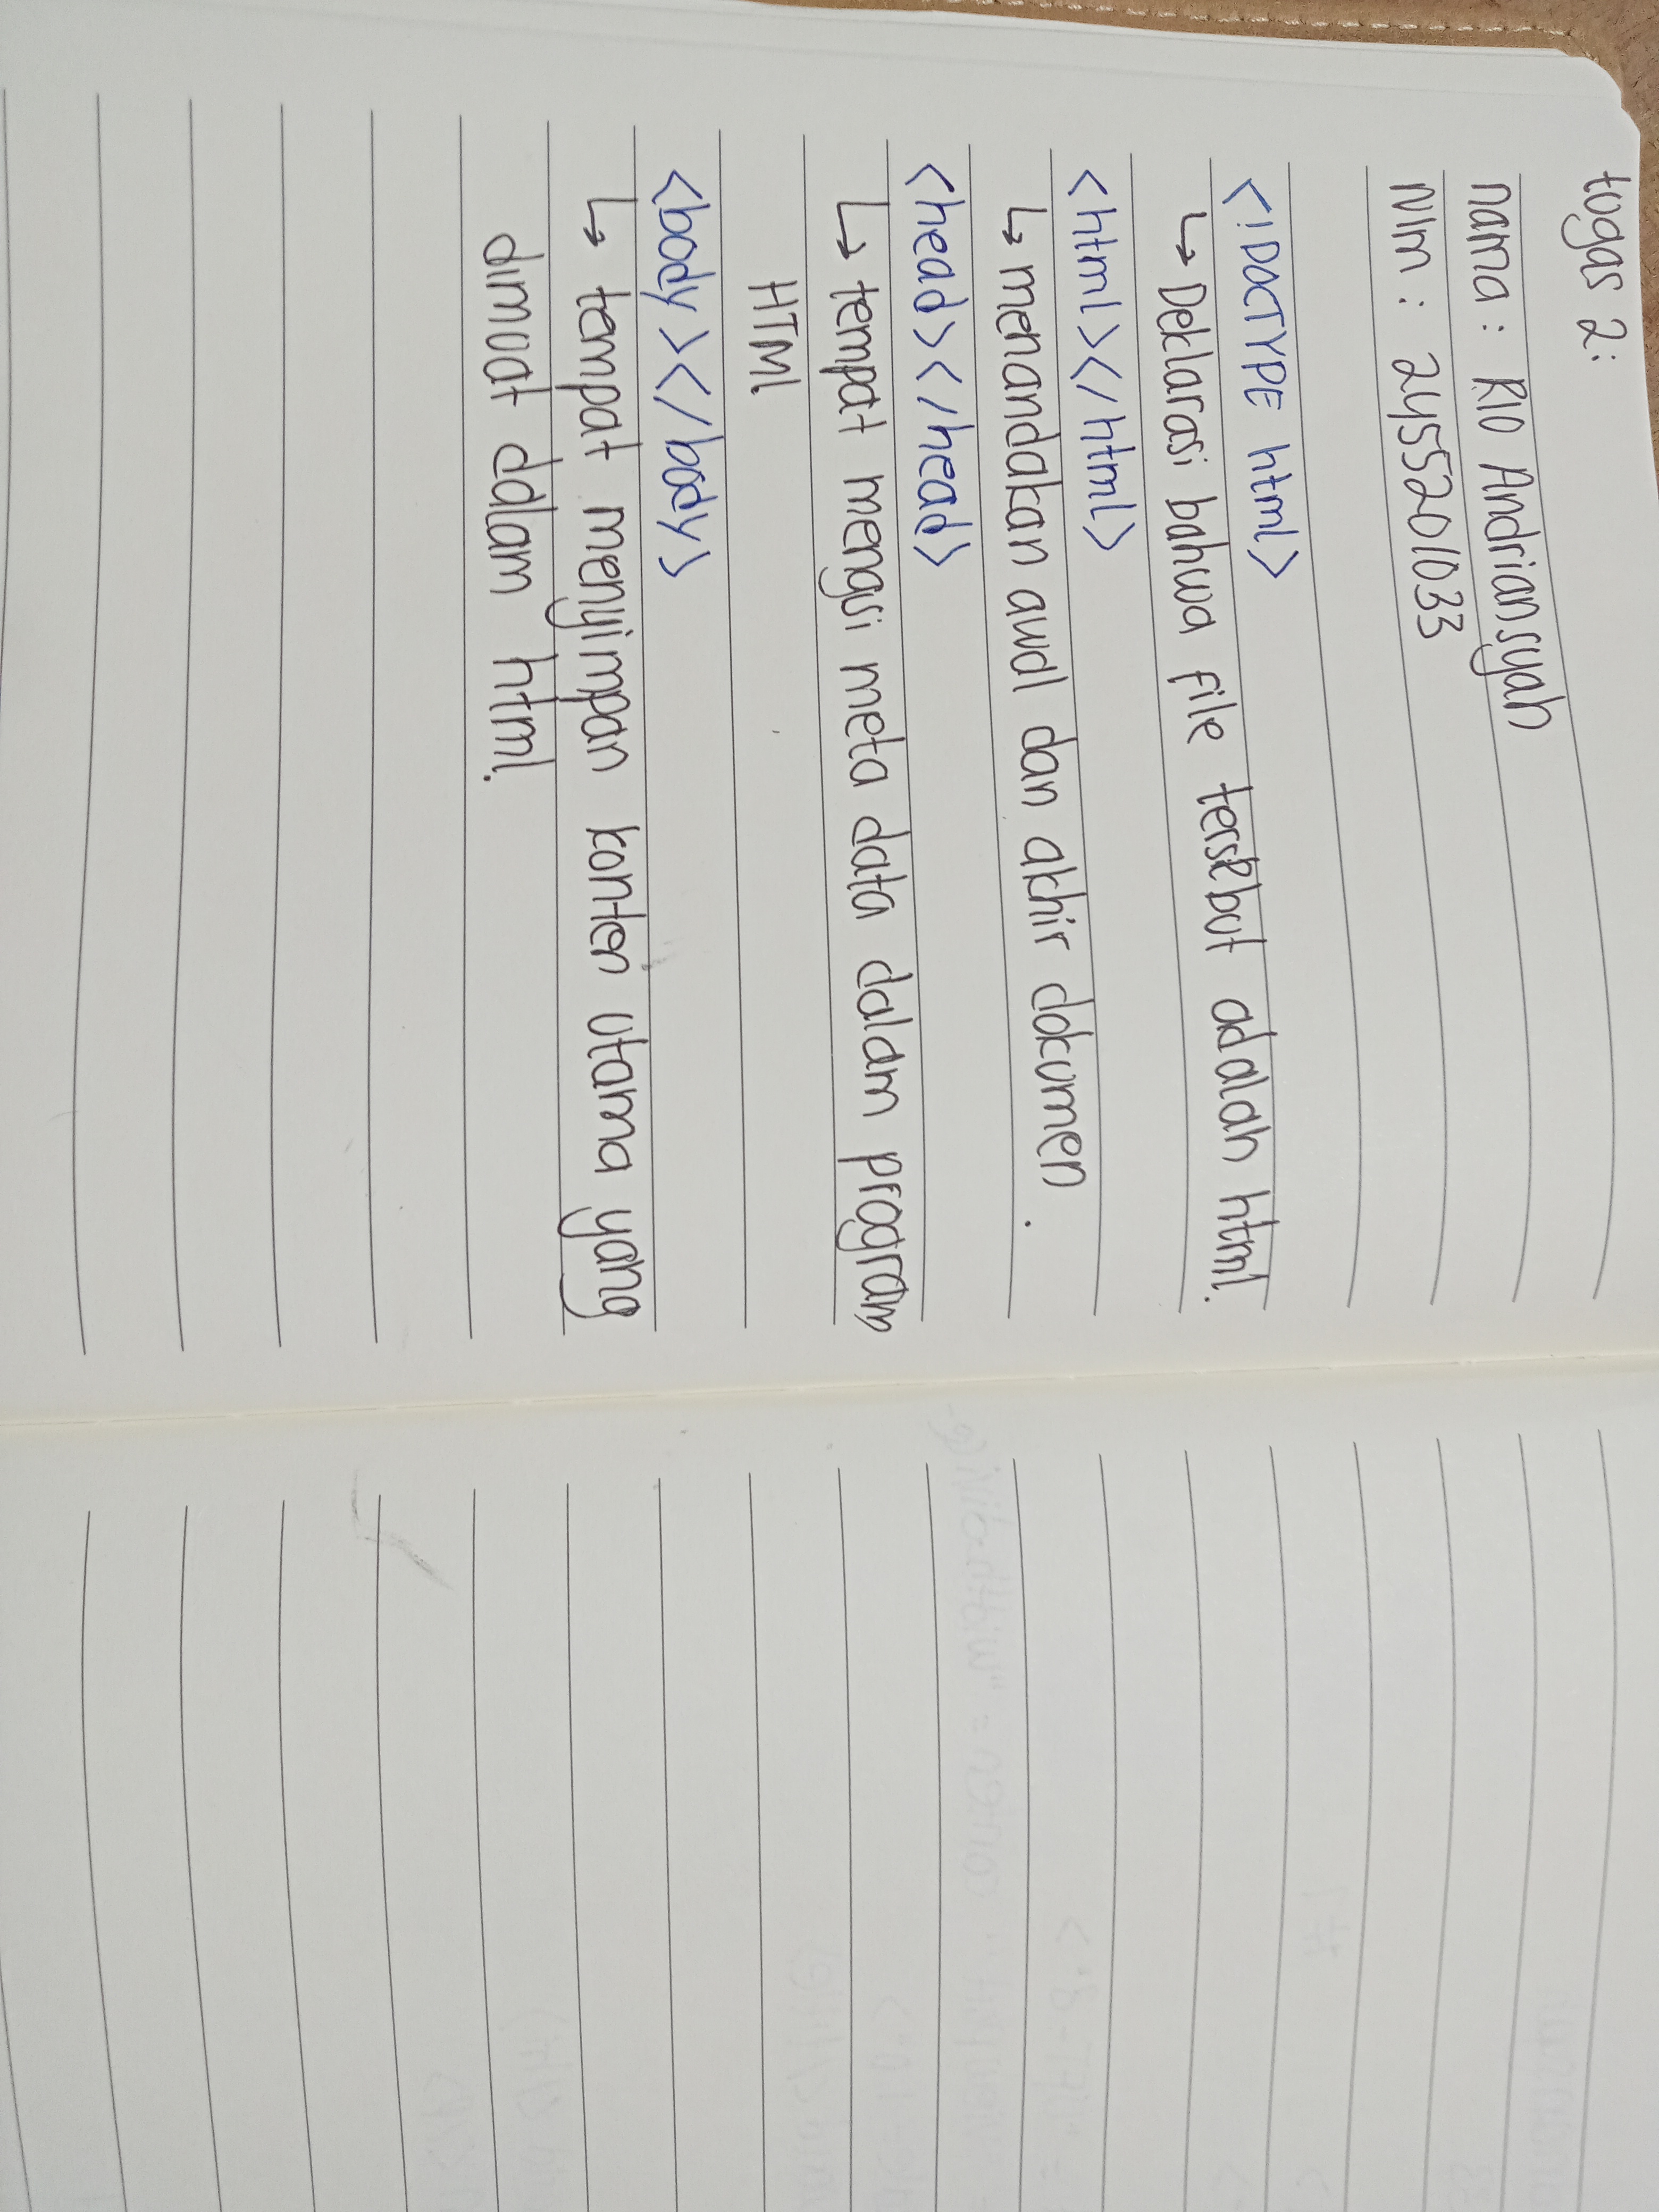 tugas 2:
nama : RIO Andriansyah
NIM : 2455201033
<!DOCTYPE html>
↳ Deklarasi bahwa file tersebut adalah html.
<html></html>
↳ menandakan awal dan akhir dokumen.
<head></head>
↳ tempat mengsi meta data dalam program
HTML
<body></body>
↳ tempat menyimpan konten utama yang
dimuat dalam html.